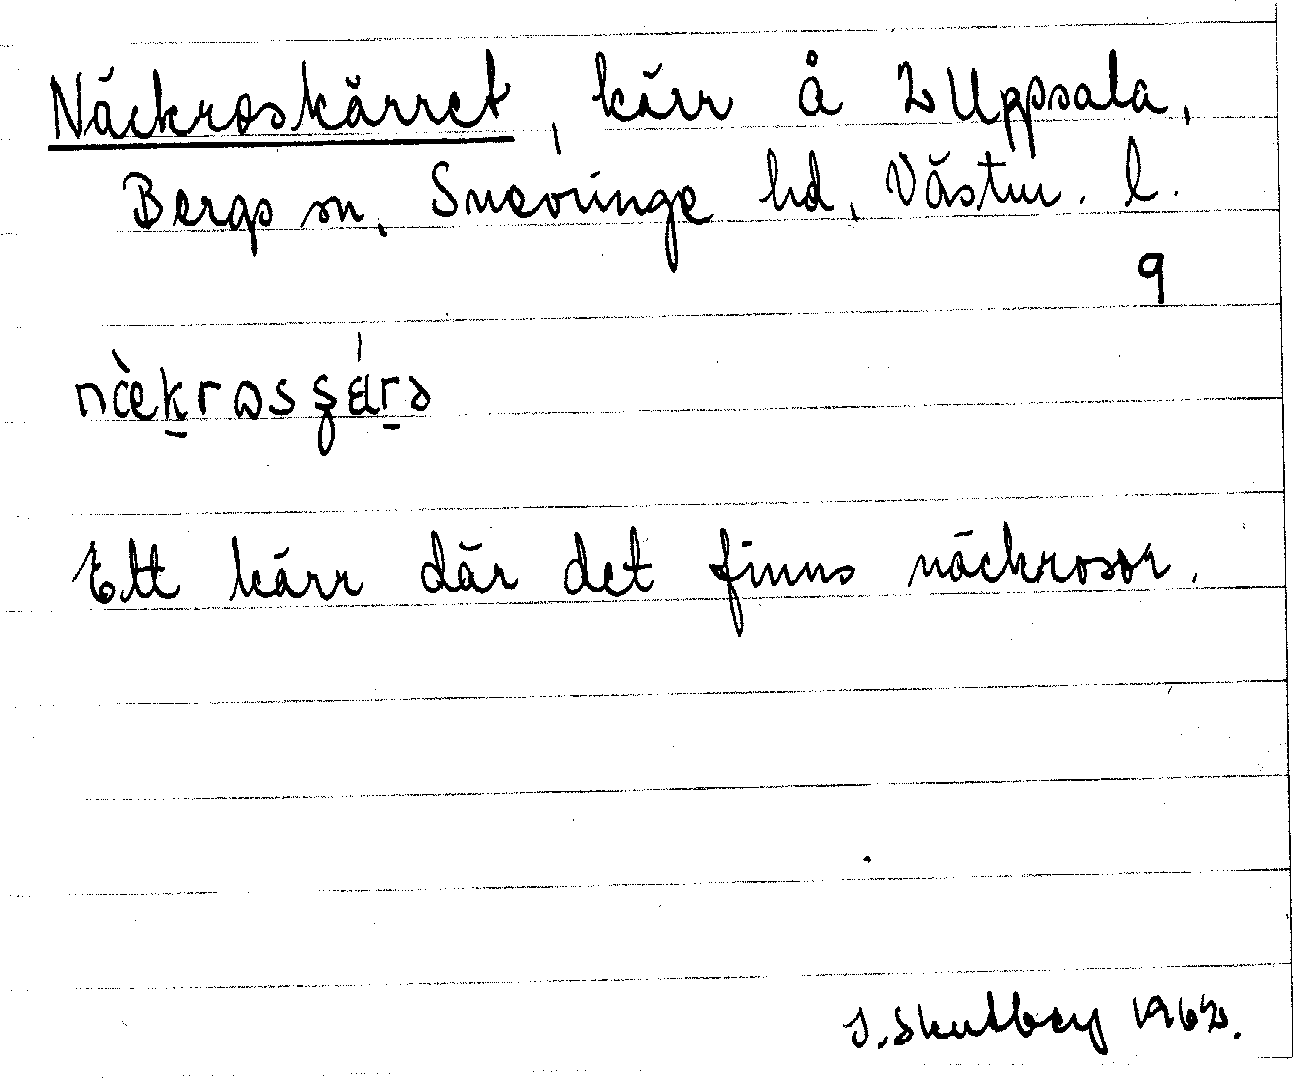 Näckroskärret, kärr å 2 Uppsala,
Bergs sn, Snevringe hd, Västm. l.
9
Ett kärr där det finns näckrosor.
S. Skutberg 1962.